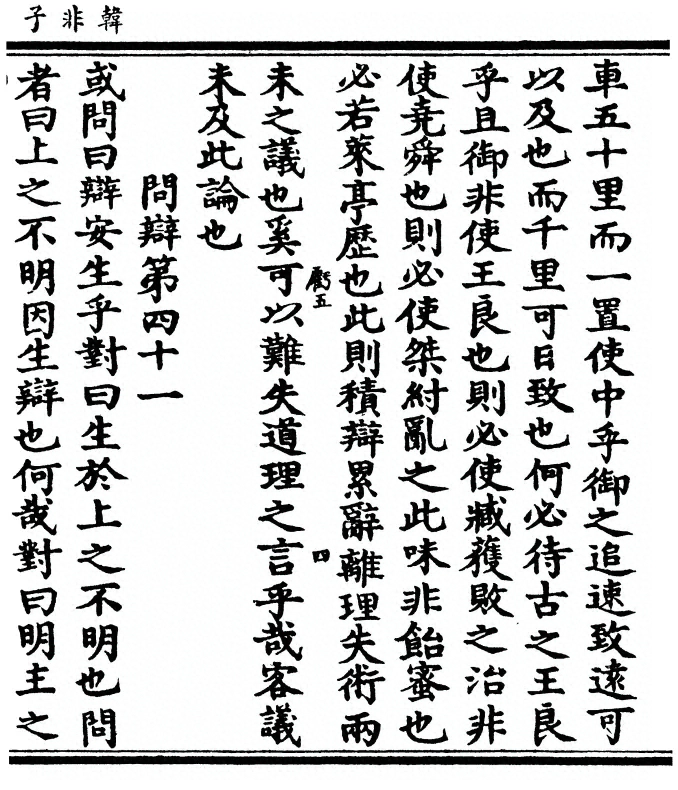 韓非子
車五十里而一置使中乎御之追速致遠可
以及也而千里可日致也何必待古之王良
乎且御非使王良也則必使臧獲敗之治非
使堯舜也則必使桀紂亂之此味非飴蜜也
必若萊亭歷也此則積辯累辭離理失術兩
未之議也奚可以難失道理之言乎哉客議
未及此論也
虧五
四
問辯第四十一
或問曰辯安生乎對曰生於上之不明也問
者曰上之不明因生辯也何哉對曰明主之